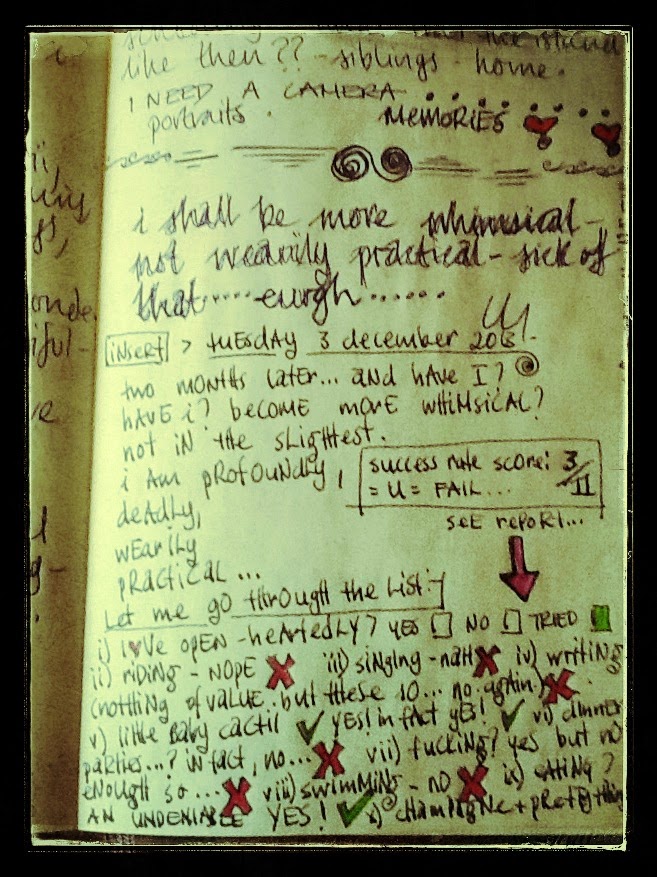 i
like then?? siblings home.
I NEED A CAMERA
portraits.
MEMORIES
i shall be more whimsical -
not wearily practical - sick of
that..... eurgh......
insert > tuesday 3 december 2013.
two MONTHS later... and have I?
have i? become more whimsical?
not in the slightest.
i am profoundly,
deadly,
wearily
practical...
success rate score: 3/11
= U = FAIL...
see report...
Let me go through the list:-
i) love open-heartedly? yes NO TRIED
ii) riding - NOPE iii) singing - nah iv) writing
(nothing of value.. but these 10... no again)
v) little baby cactii yes! in fact yes! vi) dinner
parties...? in fact, no... vii) fucking? yes but no
enough so... viii) swimming - no ix) eating?
AN UNDENIABLE YES! x) champagne + pretty thin